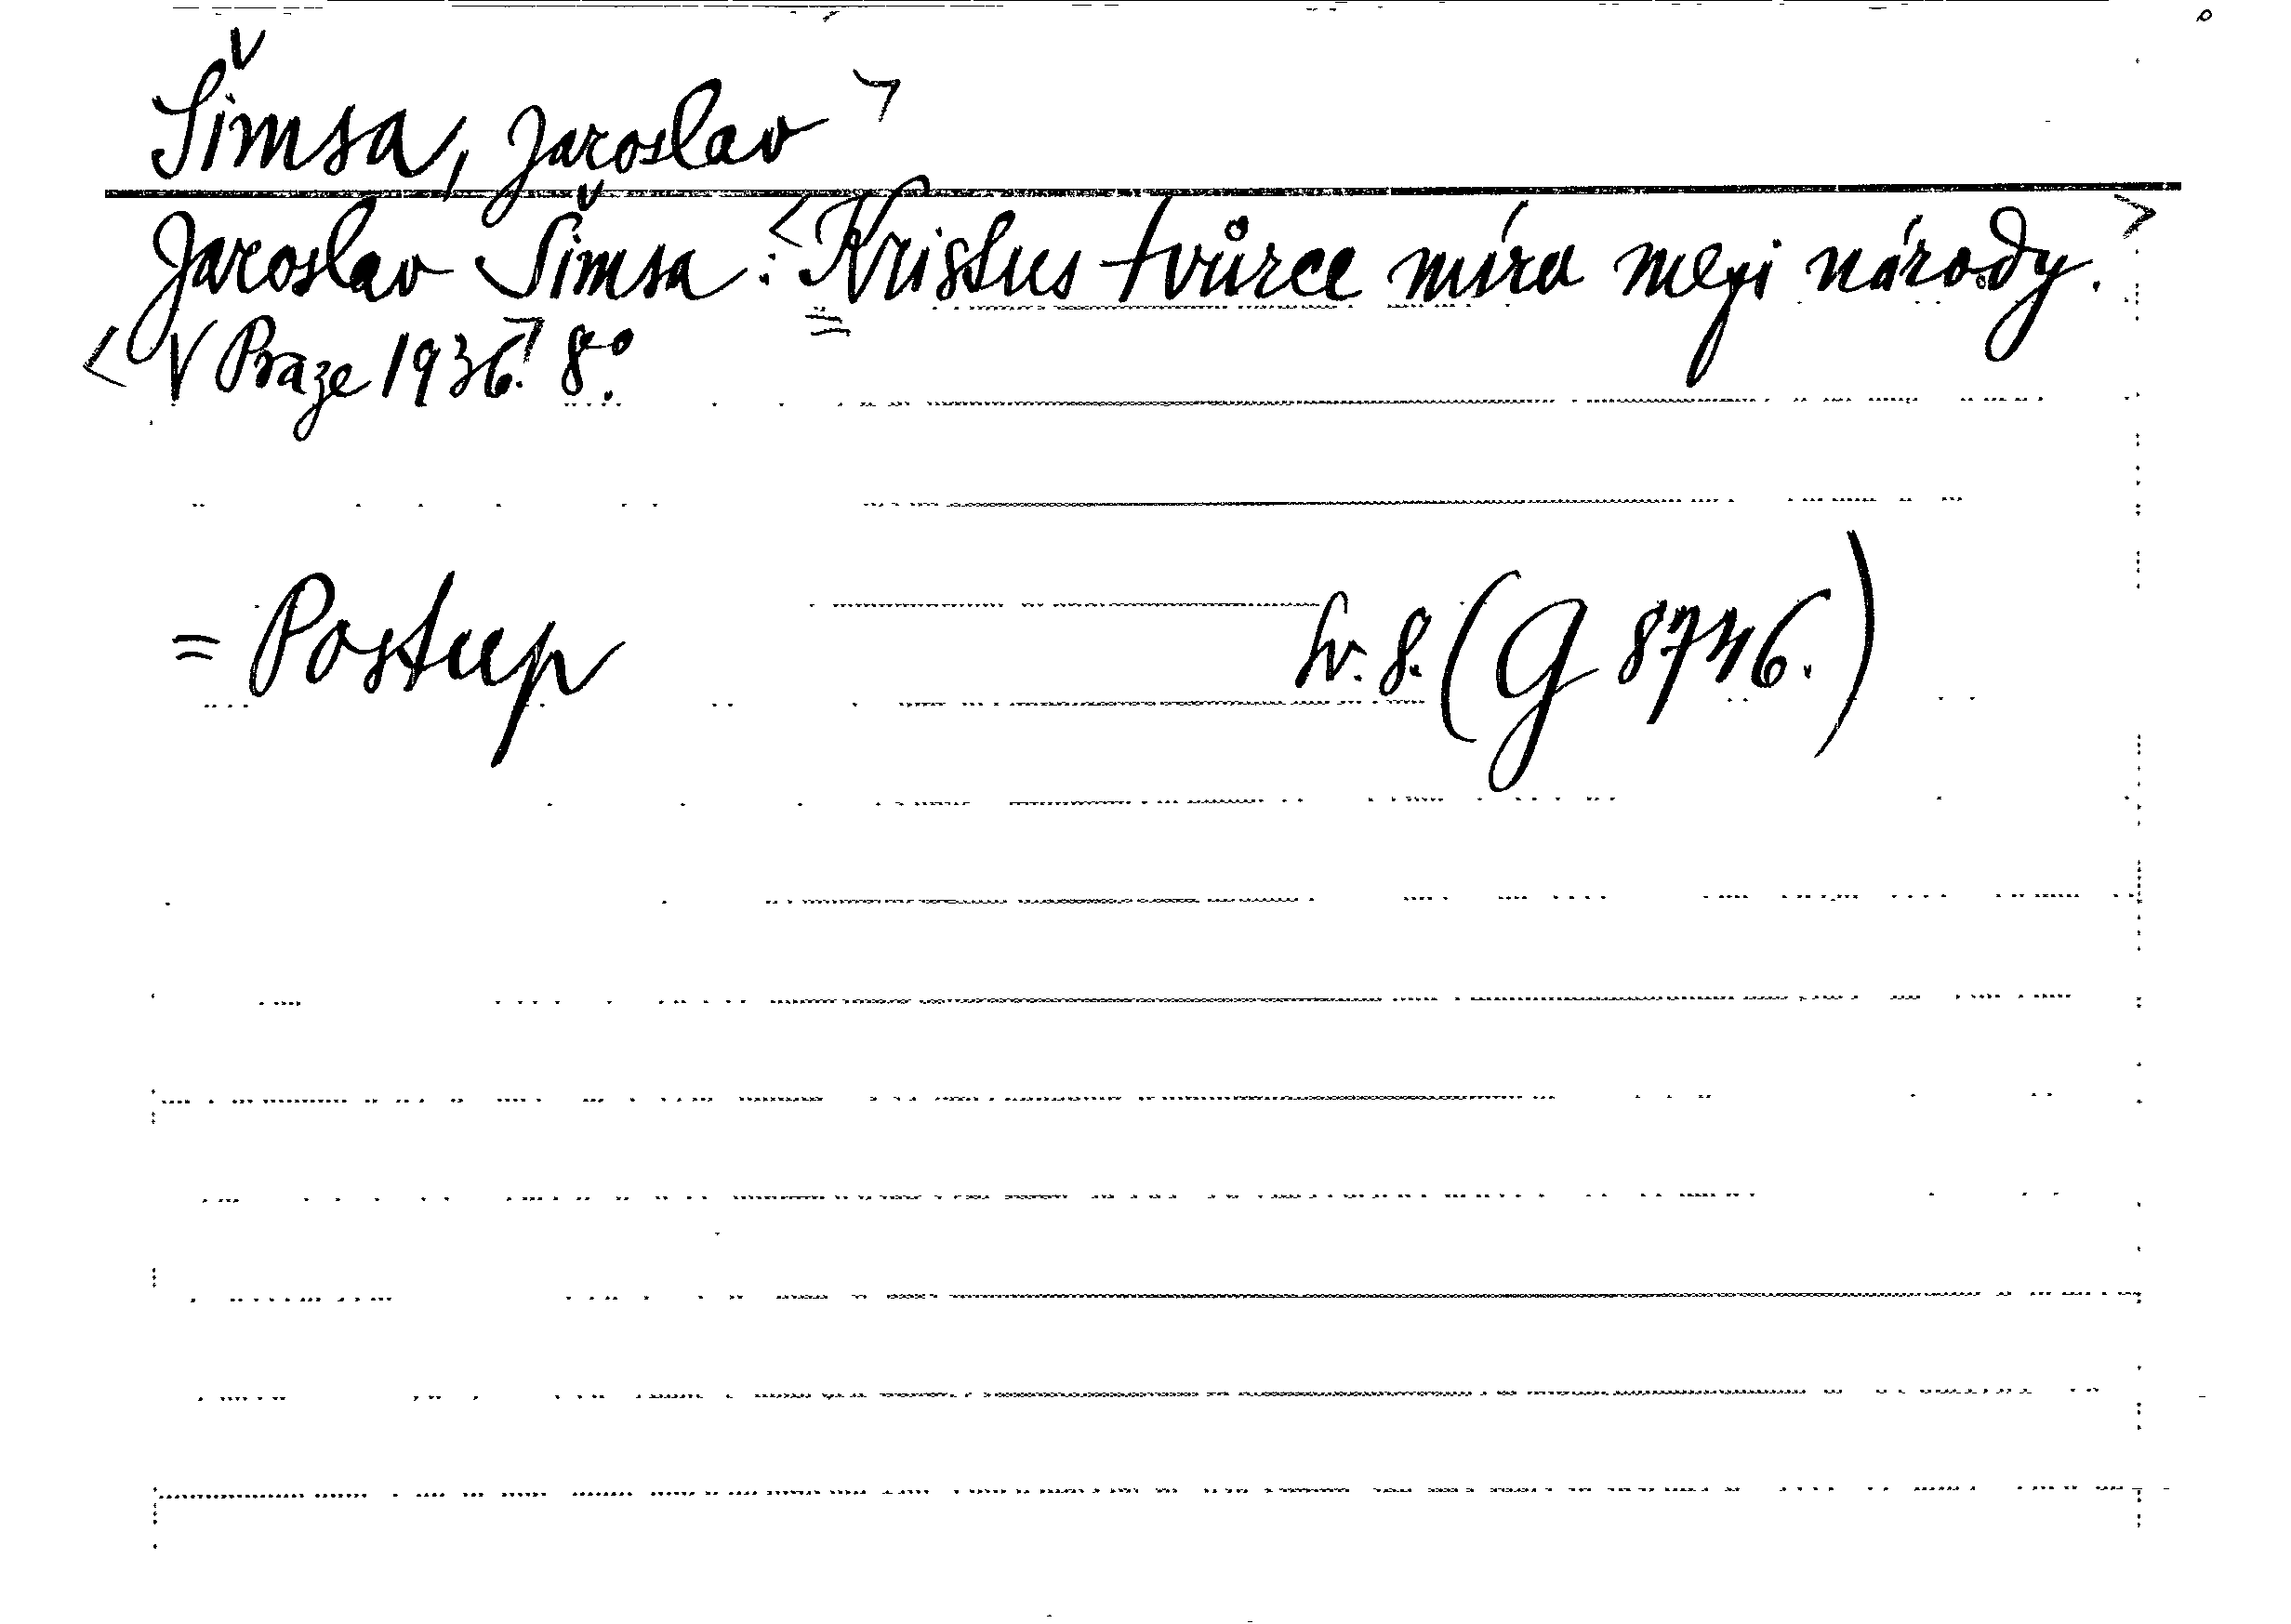 Šimsa, Jaroslav >
Jaroslav Šimsa: <Kristus tvůrce míru mezi národy.>
<V Praze 1936.> 8°.
= Postup sv. 8. (G 8746.)